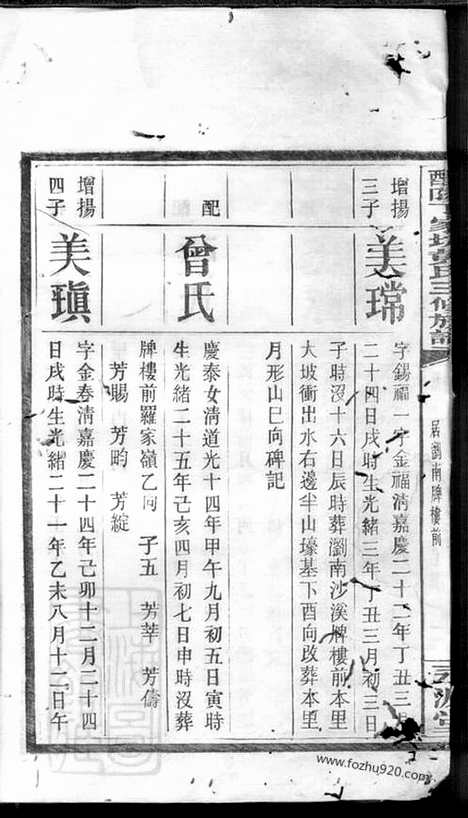 居瀏南牌樓前
增揚
三子
美瑺
字錫福一字金福淸嘉慶二十二年丁丑三月
二十四日戌時生光緒三年丁丑三月初三日
子時沒十六日辰時葬瀏南沙溪牌樓前本里
大坡衝出水右邊半山壕基下酉向改葬本里
月形山巳向碑記
配
曾氏
慶泰女淸道光十四年甲午九月初五日寅時
生光緒二十五年己亥四月初七日申時沒葬
牌樓前羅家嶺乙向 子五 芳莘 芳儔
芳賜 芳畇 芳綻
增揚
四子
美瑱
字金春淸嘉慶二十四年己卯十二月二十四
日戌時生光緒二十一年乙未八月十二日午
www.fozhu920.com